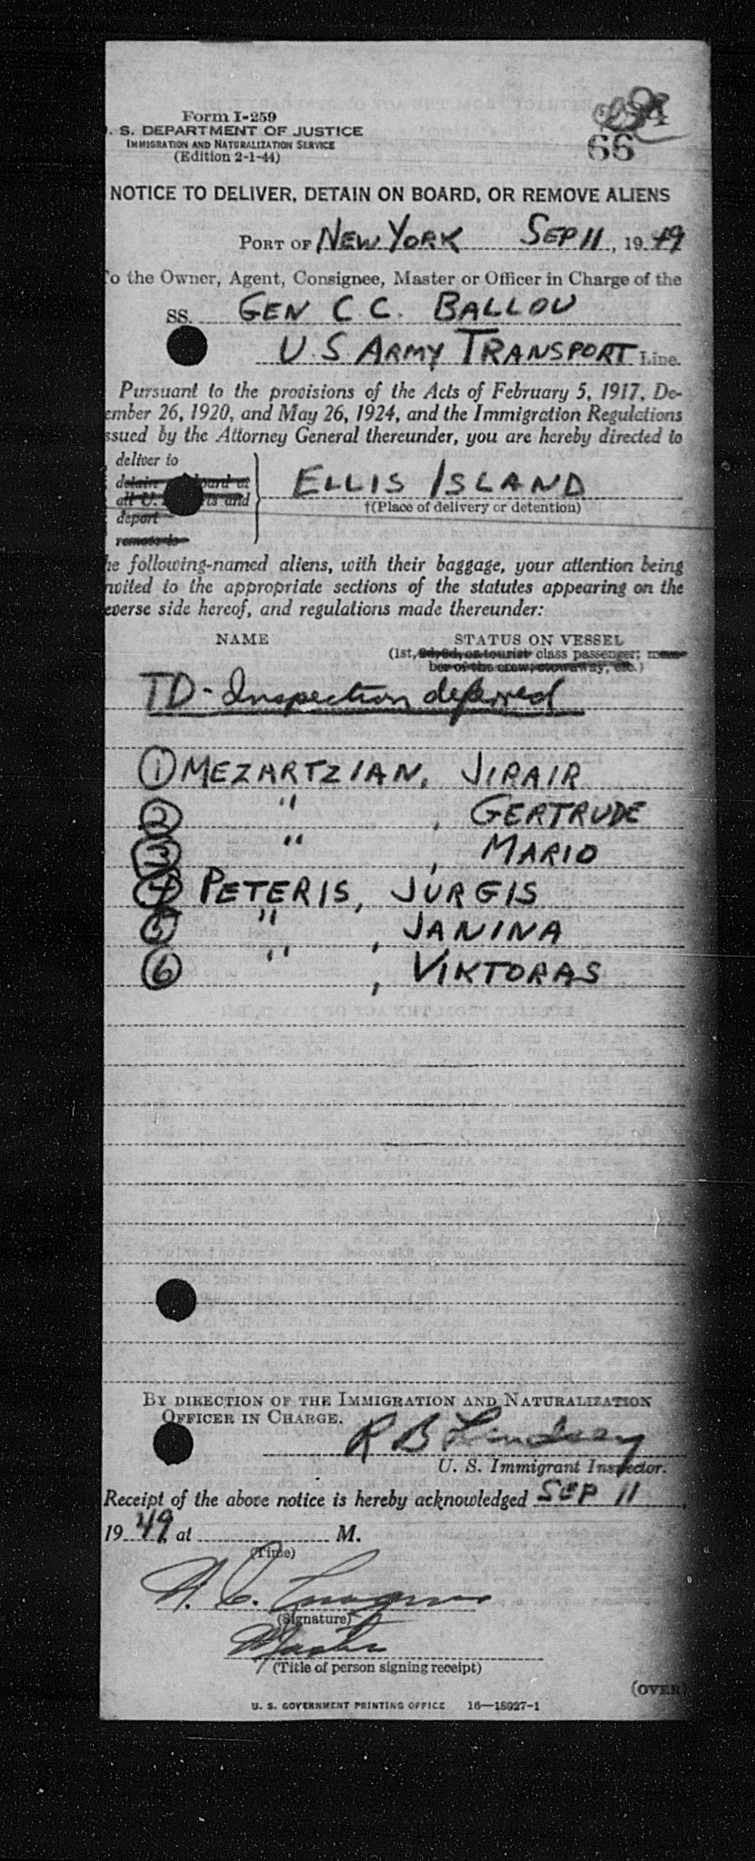 Form I-259
. S. DEPARTMENT OF JUSTICE
IMMIGRATION AND NATURALIZATION SERVICE
(Edition 2-1-44)
66
NOTICE TO DELIVER, DETAIN ON BOARD, OR REMOVE ALIENS
PORT OF NEW YORK SEP 11, 1949
o the Owner, Agent, Consignee, Master or Officer in Charge of the
SS. GEN C C. BALLOU
U S ARMY TRANSPORT Line.
Pursuant to the provisions of the Acts of February 5, 1917, De-
ember 26, 1920, and May 26, 1924, and the Immigration Regulations
ssued by the Attorney General thereunder, you are hereby directed to
deliver to
detain board at
all U. and
deport
remove to
ELLIS ISLAND
†(Place of delivery or detention)
he following-named aliens, with their baggage, your attention being
nvited to the appropriate sections of the statutes appearing on the
everse side hereof, and regulations made thereunder:
NAME STATUS ON VESSEL
(1st, 2d, 3d, or tourist class passenger; mem-
ber of the crew; stowaway, etc.)
TD - Inspection deferred
1 MEZARTZIAN, JIRAIR
2 " , GERTRUDE
3 " , MARIO
4 PETERIS, JURGIS
5 " , JANINA
6 " , VIKTORAS
BY DIRECTION OF THE IMMIGRATION AND NATURALIZATION
OFFICER IN CHARGE.
R B Lindsey
U. S. Immigrant Inspector.
Receipt of the above notice is hereby acknowledged SEP 11,
1949, at M.
(Time)
(Signature)
Master
(Title of person signing receipt)
(OVER)
U. S. GOVERNMENT PRINTING OFFICE 16—18927-1